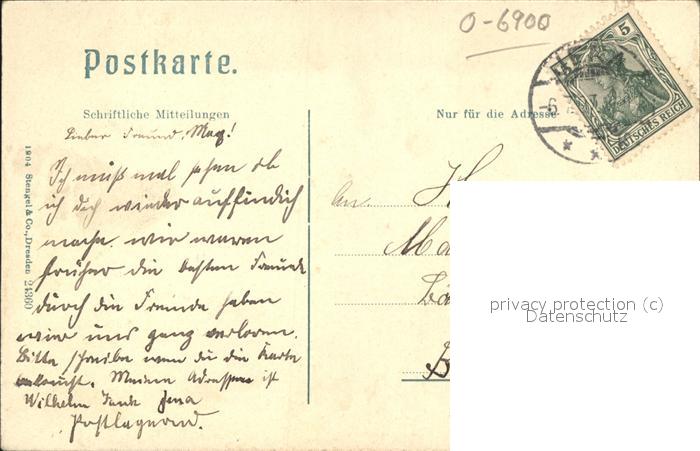 O-6900
Postkarte.
Schriftliche Mitteilungen
Nur für die Adresse
5
DEUTSCHES REICH
JENA
Lieber Freund, Max!
Ich muß mal sehen ob
ich dich wieder auffindich
mache. wir waren
früher die besten Freunde
durch die Fremde haben
wir uns ganz verloren.
Bitte schreibe wenn du die Karte
Meine Adresse ist
Wilhelm Jena
Postlagernd.
1904 Stengel & Co., Dresden 24360
An
H
Ma
B
privacy protection (c)
Datenschutz